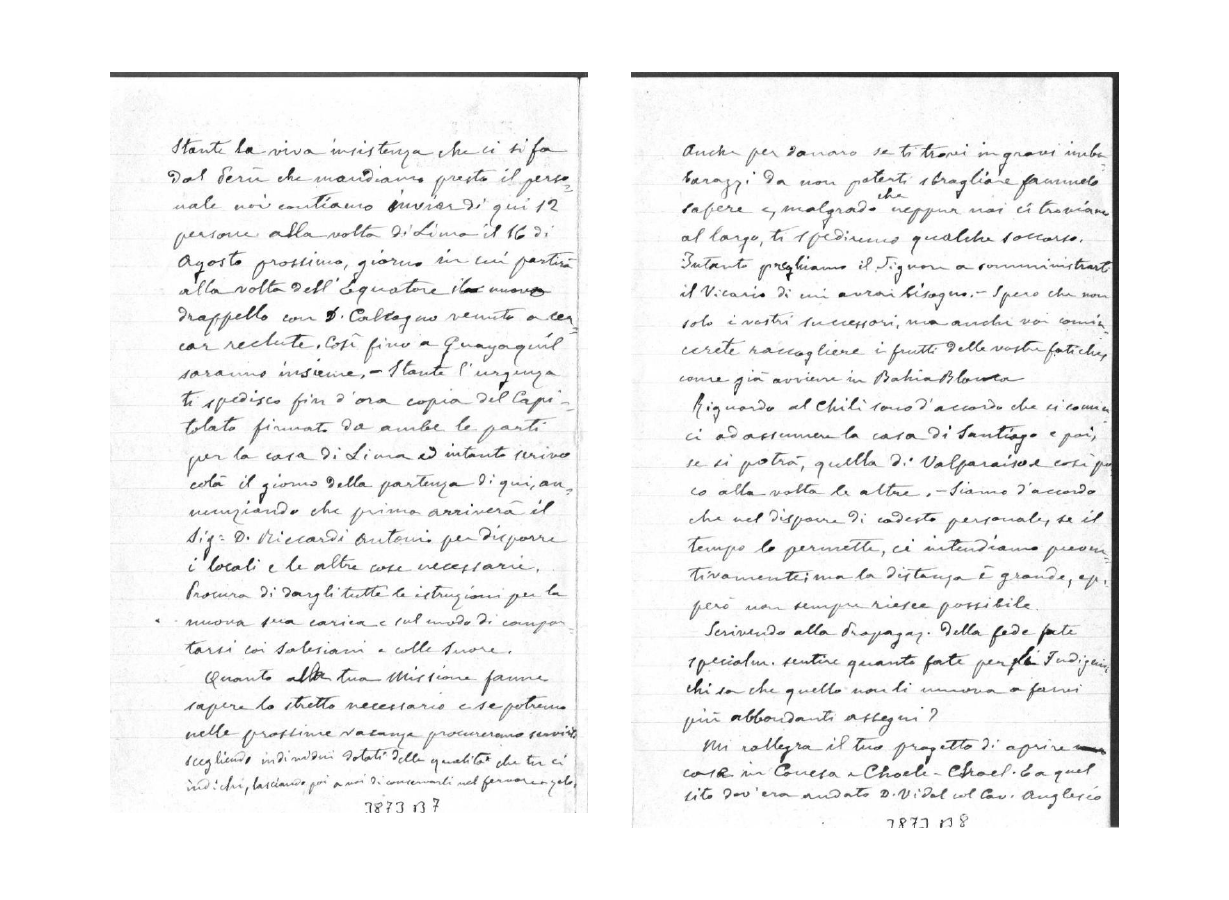 Stante la viva insistenza che ci si fa
dal Perù che mandiamo presto il perso=
nale noi contiamo inviar di qui 12
persone alla volta di Lima il 16 di
Agosto prossimo, giorno in cui partirà
alla volta dell'Equatore il nuovo
drappello con D. Calcagno venuto a cer=
car reclute. Così fino a Guayaquil
saranno insieme. – Stante l'urgenza
ti spedisco fin d'ora copia del Capi=
tolato firmato da ambe le parti
per la casa di Lima ed intanto scrivo
colà il giorno della partenza di qui, an=
nunziando che prima arriverà il
Sig: D. Riccardi Antonio per disporre
i locali e le altre cose necessarie.
Procura di dargli tutte le istruzioni per la
nuova sua carica e sul modo di compor=
tarsi coi Salesiani e colle Suore.
Quanto alla tua Missione fanne
sapere lo stretto necessario e se potremo
nelle prossime vacanze procureremo servirti
scegliendo individui dotati delle qualità che tu ci
indichi, lasciando poi a voi di conservarli nel fervore e zelo.
3873 B 7
Anche per danaro se ti trovi in gravi imba=
barazzi da non poterti sbrogliare fammelo
sapere e, malgrado che neppur noi ci troviamo
al largo, ti spediremo qualche soccorso.
Intanto preghiamo il Signore a somministrarti
il Vicario di cui avrai bisogno. – Spero che non
solo i vostri successori, ma anche voi comin=
cerete raccogliere i frutti delle vostre fatiche,
come già avviene in Bahia Blanca
Riguardo al Chili sono d'accordo che si comin
ci ad assumere la casa di Santiago e poi,
se si potrà, quella di Valparaiso e così po
co alla volta le altre. – Siamo d'accordo
che nel disporre di codesto personale, se il
tempo lo permette, ci intendiamo preven=
tivamente; ma la distanza è grande, ep=
però non sempre riesce possibile.
Scrivendo alla Propagaz. della fede fate
specialm. sentire quanto fate per gli Indigeni,
chi sa che quello non li muova a farvi
più abbondanti assegni?
Mi rallegra il tuo progetto di aprire
casa in Conesa e Choele-Choel. È a quel
sito dov'era andato D. Vidal col Cav. Anglesio
3873 B 8